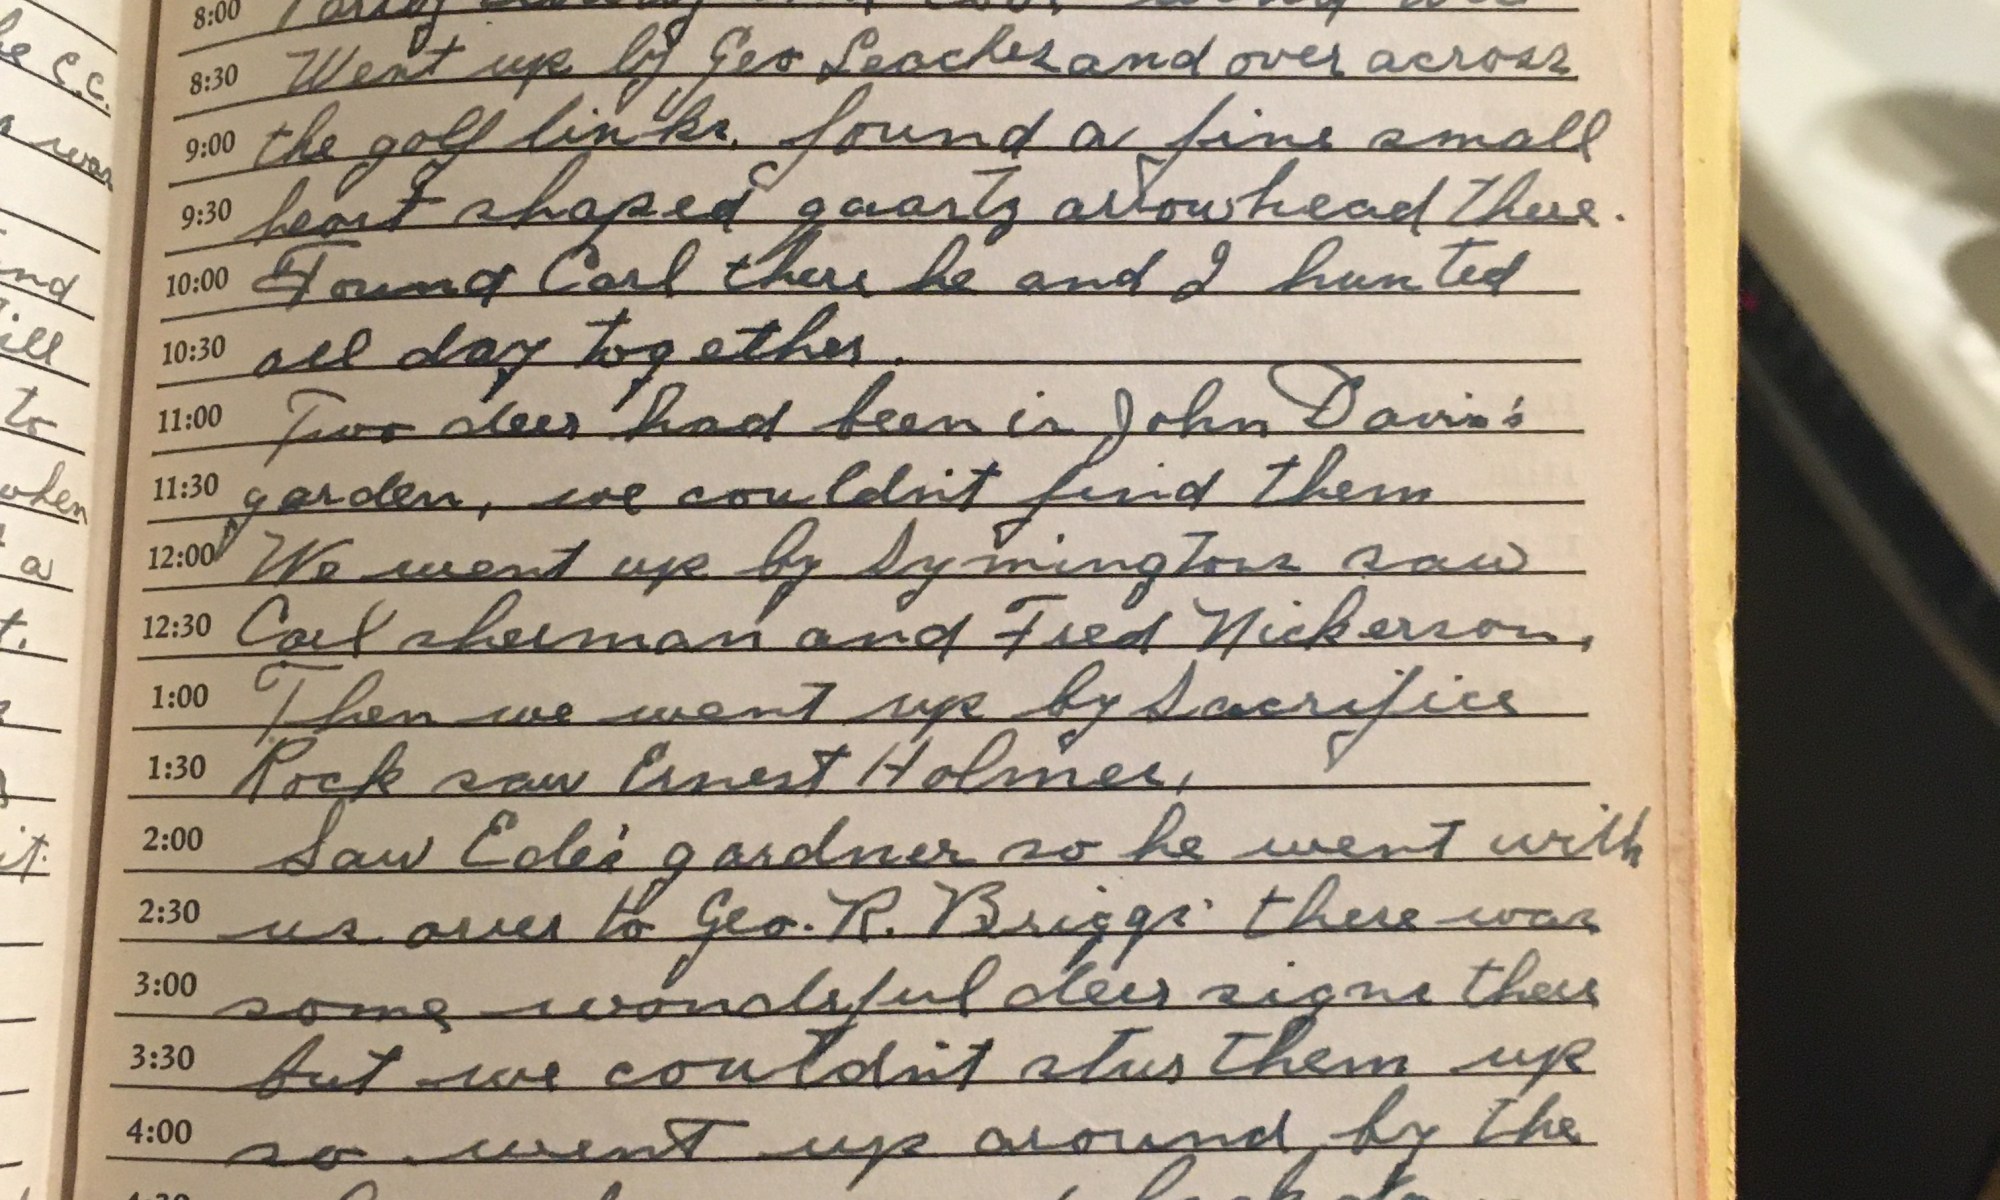 he c.c.
was
and
ill
to
when
a
t.
it.
8:00
8:30 Went up by Geo Leaches and over across
9:00 the golf links. found a fine small
9:30 heart shaped quartz arrowhead there.
10:00 Found Carl there he and I hunted
10:30 all day together.
11:00 Two deer had been in John Davis's
11:30 garden, we couldn't find them
12:00 We went up by Symingtons saw
12:30 Carl sherman and Fred Nickerson,
1:00 Then we went up by Sacrifice
1:30 Rock saw Ernest Holmes,
2:00 Saw Ede's gardner so he went with
2:30 us over to Geo. R. Briggs' there was
3:00 some wonderful deer signs there
3:30 but we couldn't stur them up
4:00 so went up around by the
4:30